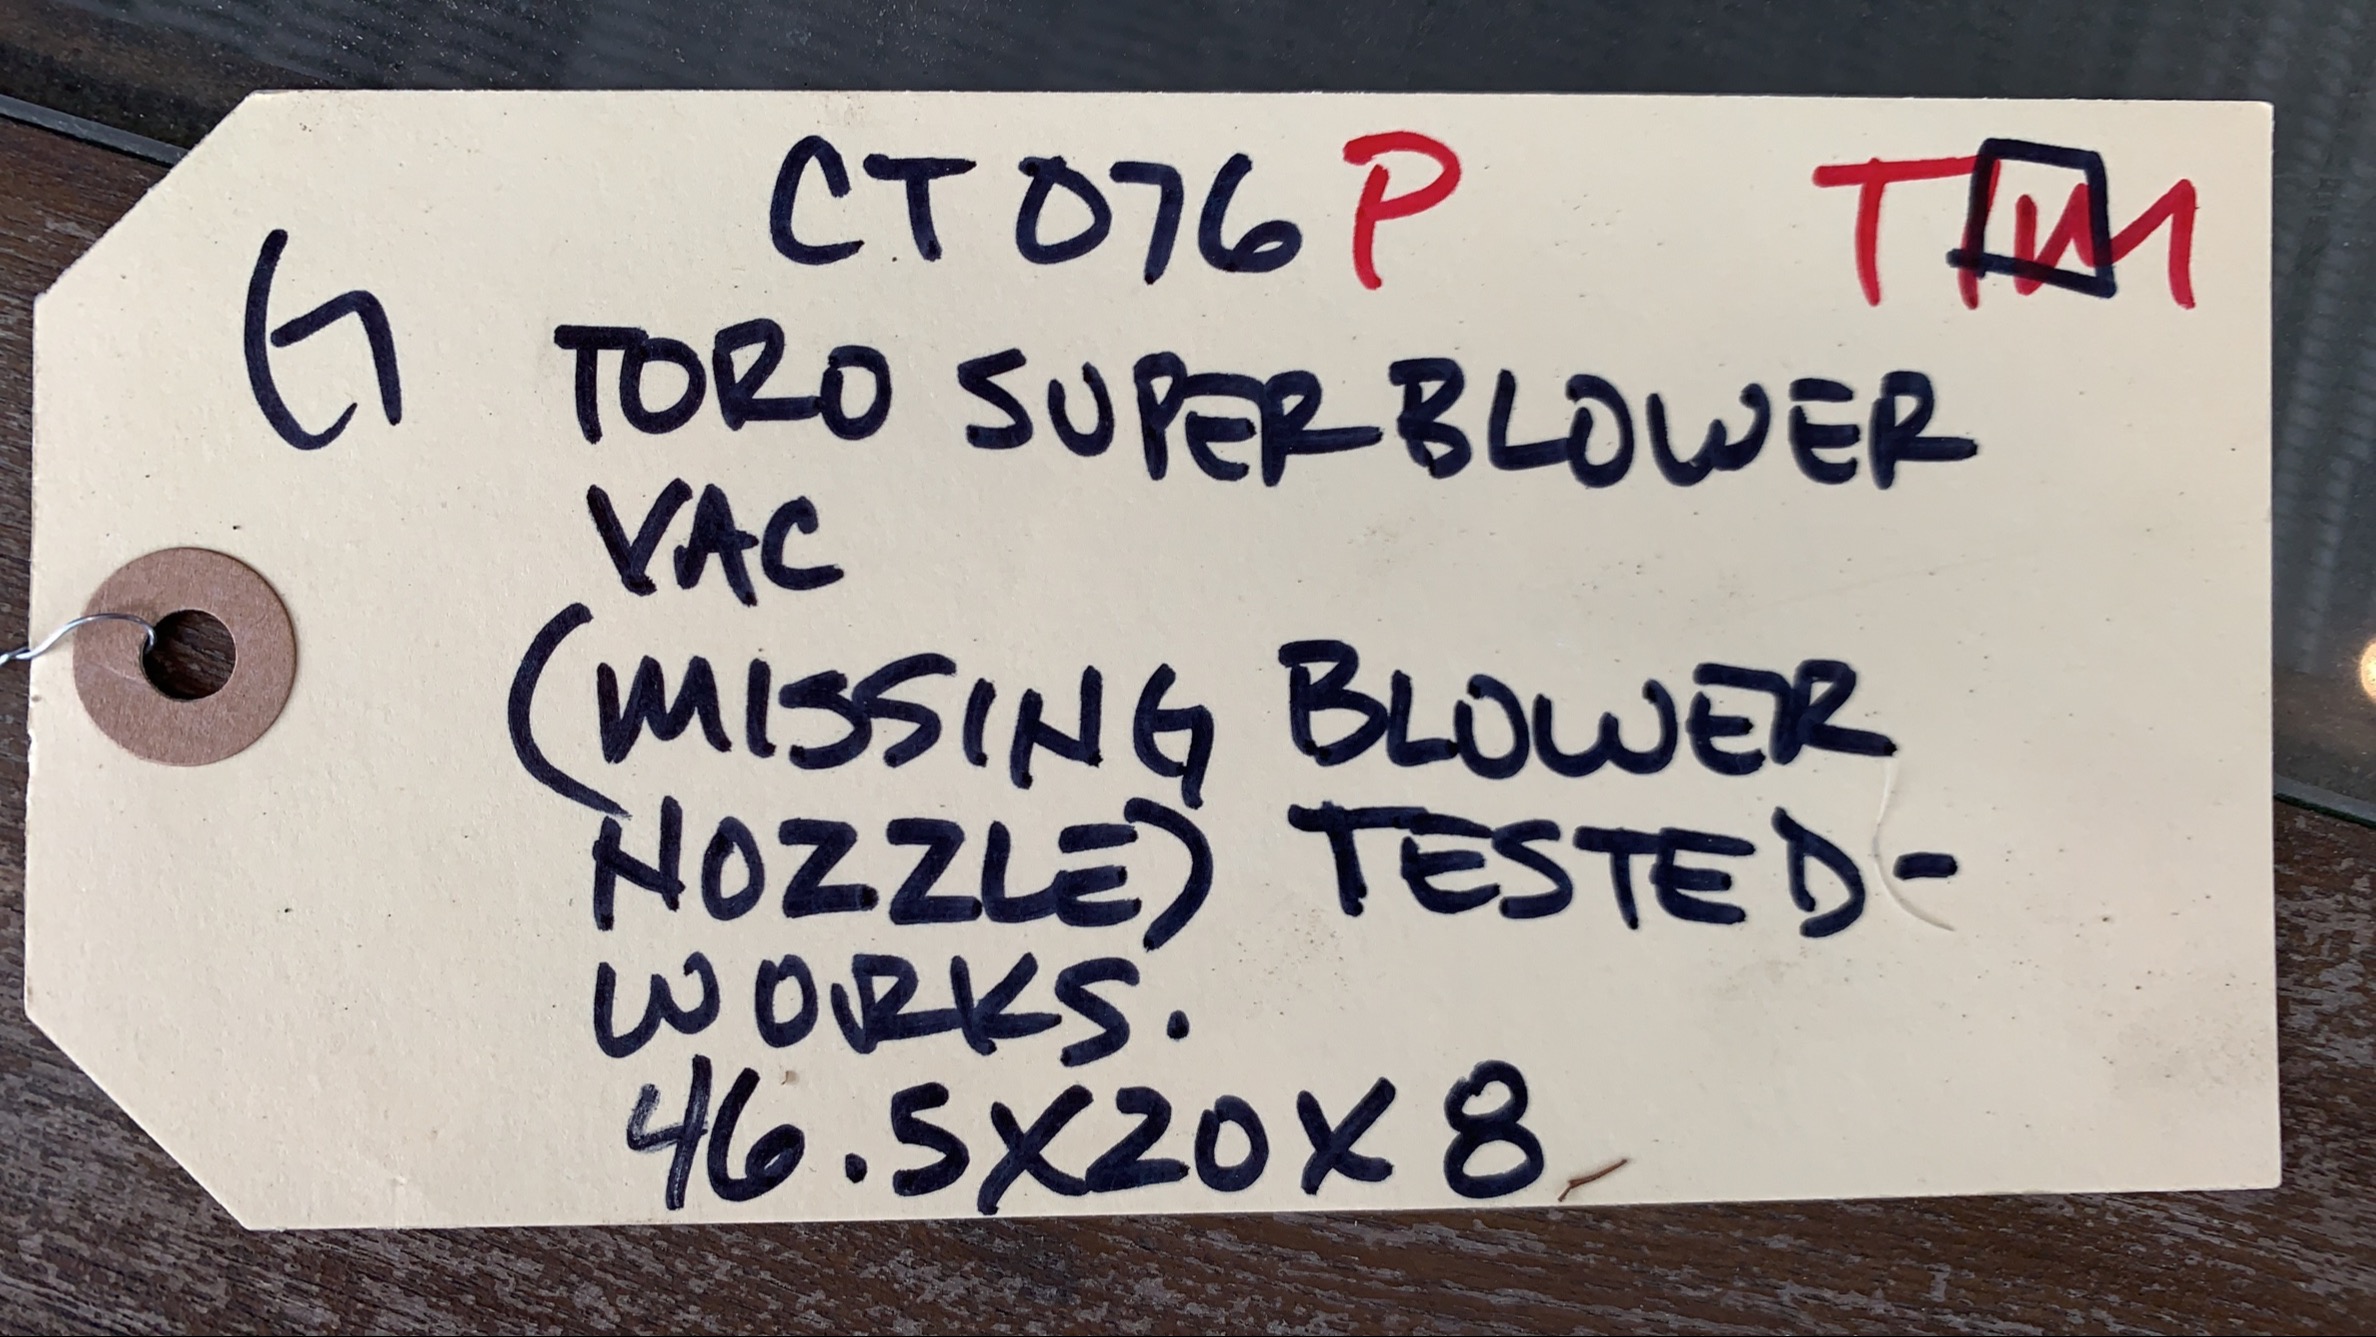 CT076P TIM
G
TORO SUPER BLOWER
VAC
(MISSING BLOWER
NOZZLE) TESTED-
WORKS.
46.5X20X8